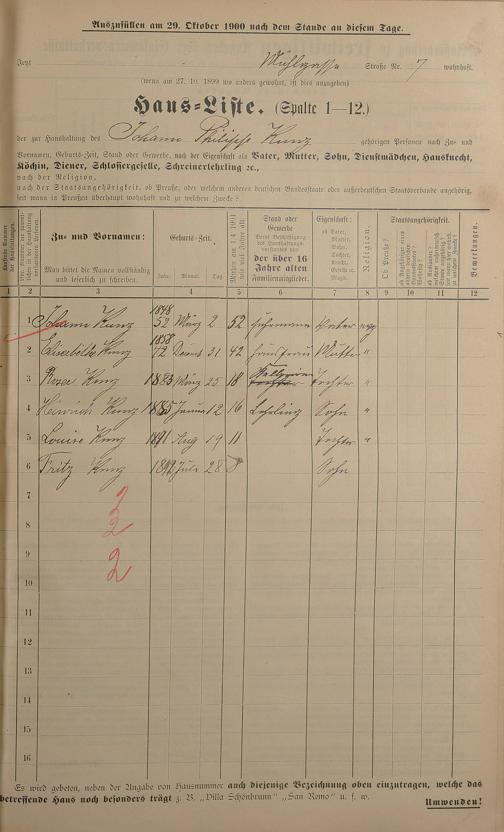 Auszufüllen am 29. Oktober 1900 nach dem Stande an diesem Tage.
Jetzt Mühlgasse Straße Nr. 7 wohnhaft.
(wenn am 27. 10. 1899 wo anders gewohnt, ist dies anzugeben)
Haus-Liste. (Spalte 1—12.)
der zur Haushaltung des Johann Philipp Kunz gehörigen Personen nach Zu- und
Vornamen, Geburts-Zeit, Stand oder Gewerbe, nach der Eigenschaft als Vater, Mutter, Sohn, Dienstmädchen, Hausknecht,
Köchin, Diener, Schlossergeselle, Schreinerlehrling ec.,
nach der Religion,
nach der Staatsangehörigkeit, ob Preuße, oder welchem anderen deutschen Bundesstaate oder außerdeutschen Staatsverbande angehörig,
seit wann in Preußen überhaupt wohnhaft und zu welchem Zwecke?
Zu- und Vornamen:
Man bittet die Namen vollständig und leserlich zu schreiben.
Geburts-Zeit.
Jahr. Monat. Tag.
Stand oder Gewerbe
der über 16 Jahre alten Familienmitglieder.
Eigenschaft:
ob Vater, Mutter, Sohn, Tochter,
Religion.
Staatsangehörigkeit.
Ob Preuße?
Bemerkungen.
1 2 3 4 5 6 7 8 9 10 11 12
1 Johann Kunz 1848 März 2 52 Fuhrmann Vater evg
2 Elisabetha Kunz 1858 31 42 Hausfrau Mutter "
3 Rosa Kunz 1883 März 25 18 Tochter "
4 Heinrich Kunz 1885 Januar 12 16 Lehrling Sohn "
5 Louise Kunz 1891 Aug 19 11 Tochter "
6 Fritz Kunz Juli 28 8 Sohn
7
8
9
10
11
12
13
14
15
16
2
2
2
Es wird gebeten, neben der Angabe von Hausnummer auch diejenige Bezeichnung oben einzutragen, welche das
betreffende Haus noch besonders trägt z. B. „Villa Schönbrunn" „San Remo" u. s. w.
Umwenden!